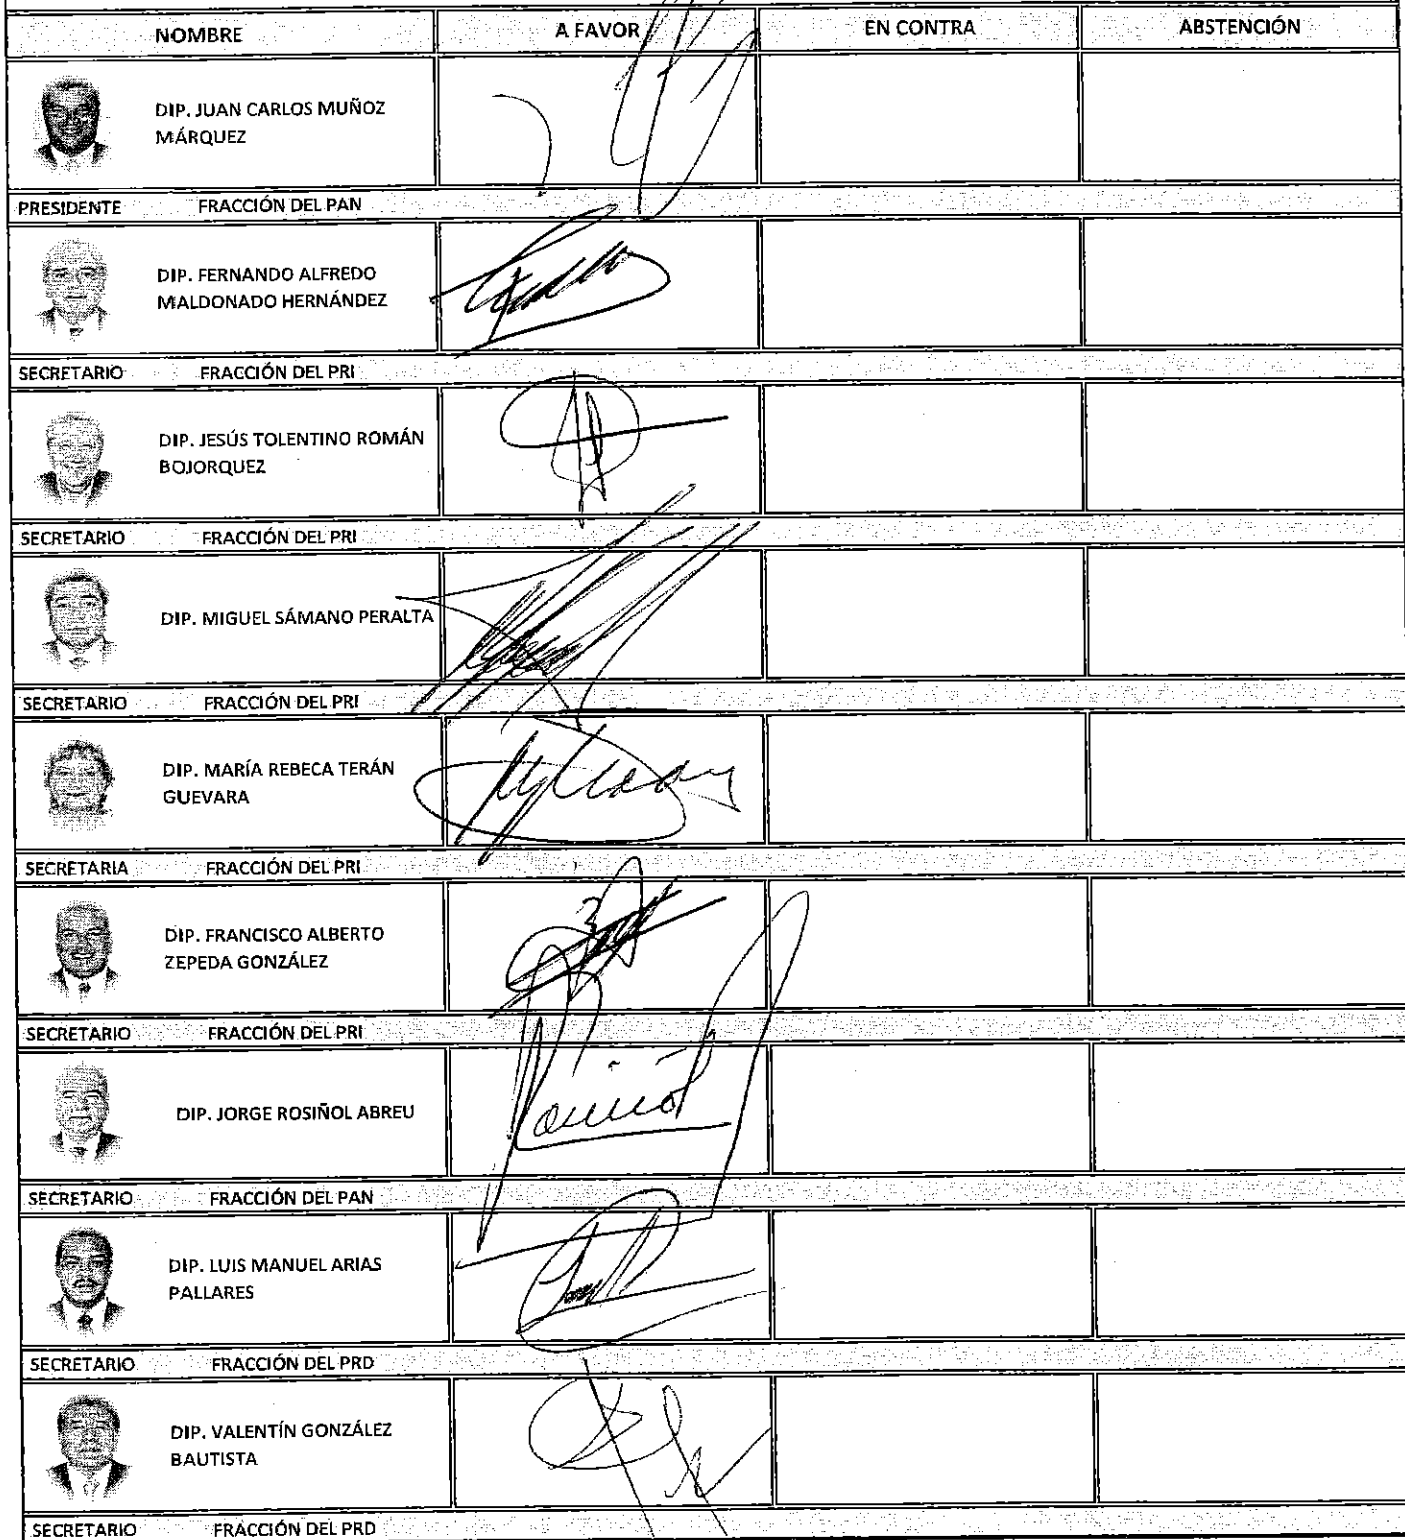 NOMBRE A FAVOR EN CONTRA ABSTENCIÓN
DIP. JUAN CARLOS MUÑOZ
MÁRQUEZ
PRESIDENTE FRACCIÓN DEL PAN
DIP. FERNANDO ALFREDO
MALDONADO HERNÁNDEZ
SECRETARIO FRACCIÓN DEL PRI
DIP. JESÚS TOLENTINO ROMÁN
BOJORQUEZ
SECRETARIO FRACCIÓN DEL PRI
DIP. MIGUEL SÁMANO PERALTA
SECRETARIO FRACCIÓN DEL PRI
DIP. MARÍA REBECA TERÁN
GUEVARA
SECRETARIA FRACCIÓN DEL PRI
DIP. FRANCISCO ALBERTO
ZEPEDA GONZÁLEZ
SECRETARIO FRACCIÓN DEL PRI
DIP. JORGE ROSIÑOL ABREU
SECRETARIO FRACCIÓN DEL PAN
DIP. LUIS MANUEL ARIAS
PALLARES
SECRETARIO FRACCIÓN DEL PRD
DIP. VALENTÍN GONZÁLEZ
BAUTISTA
SECRETARIO FRACCIÓN DEL PRD